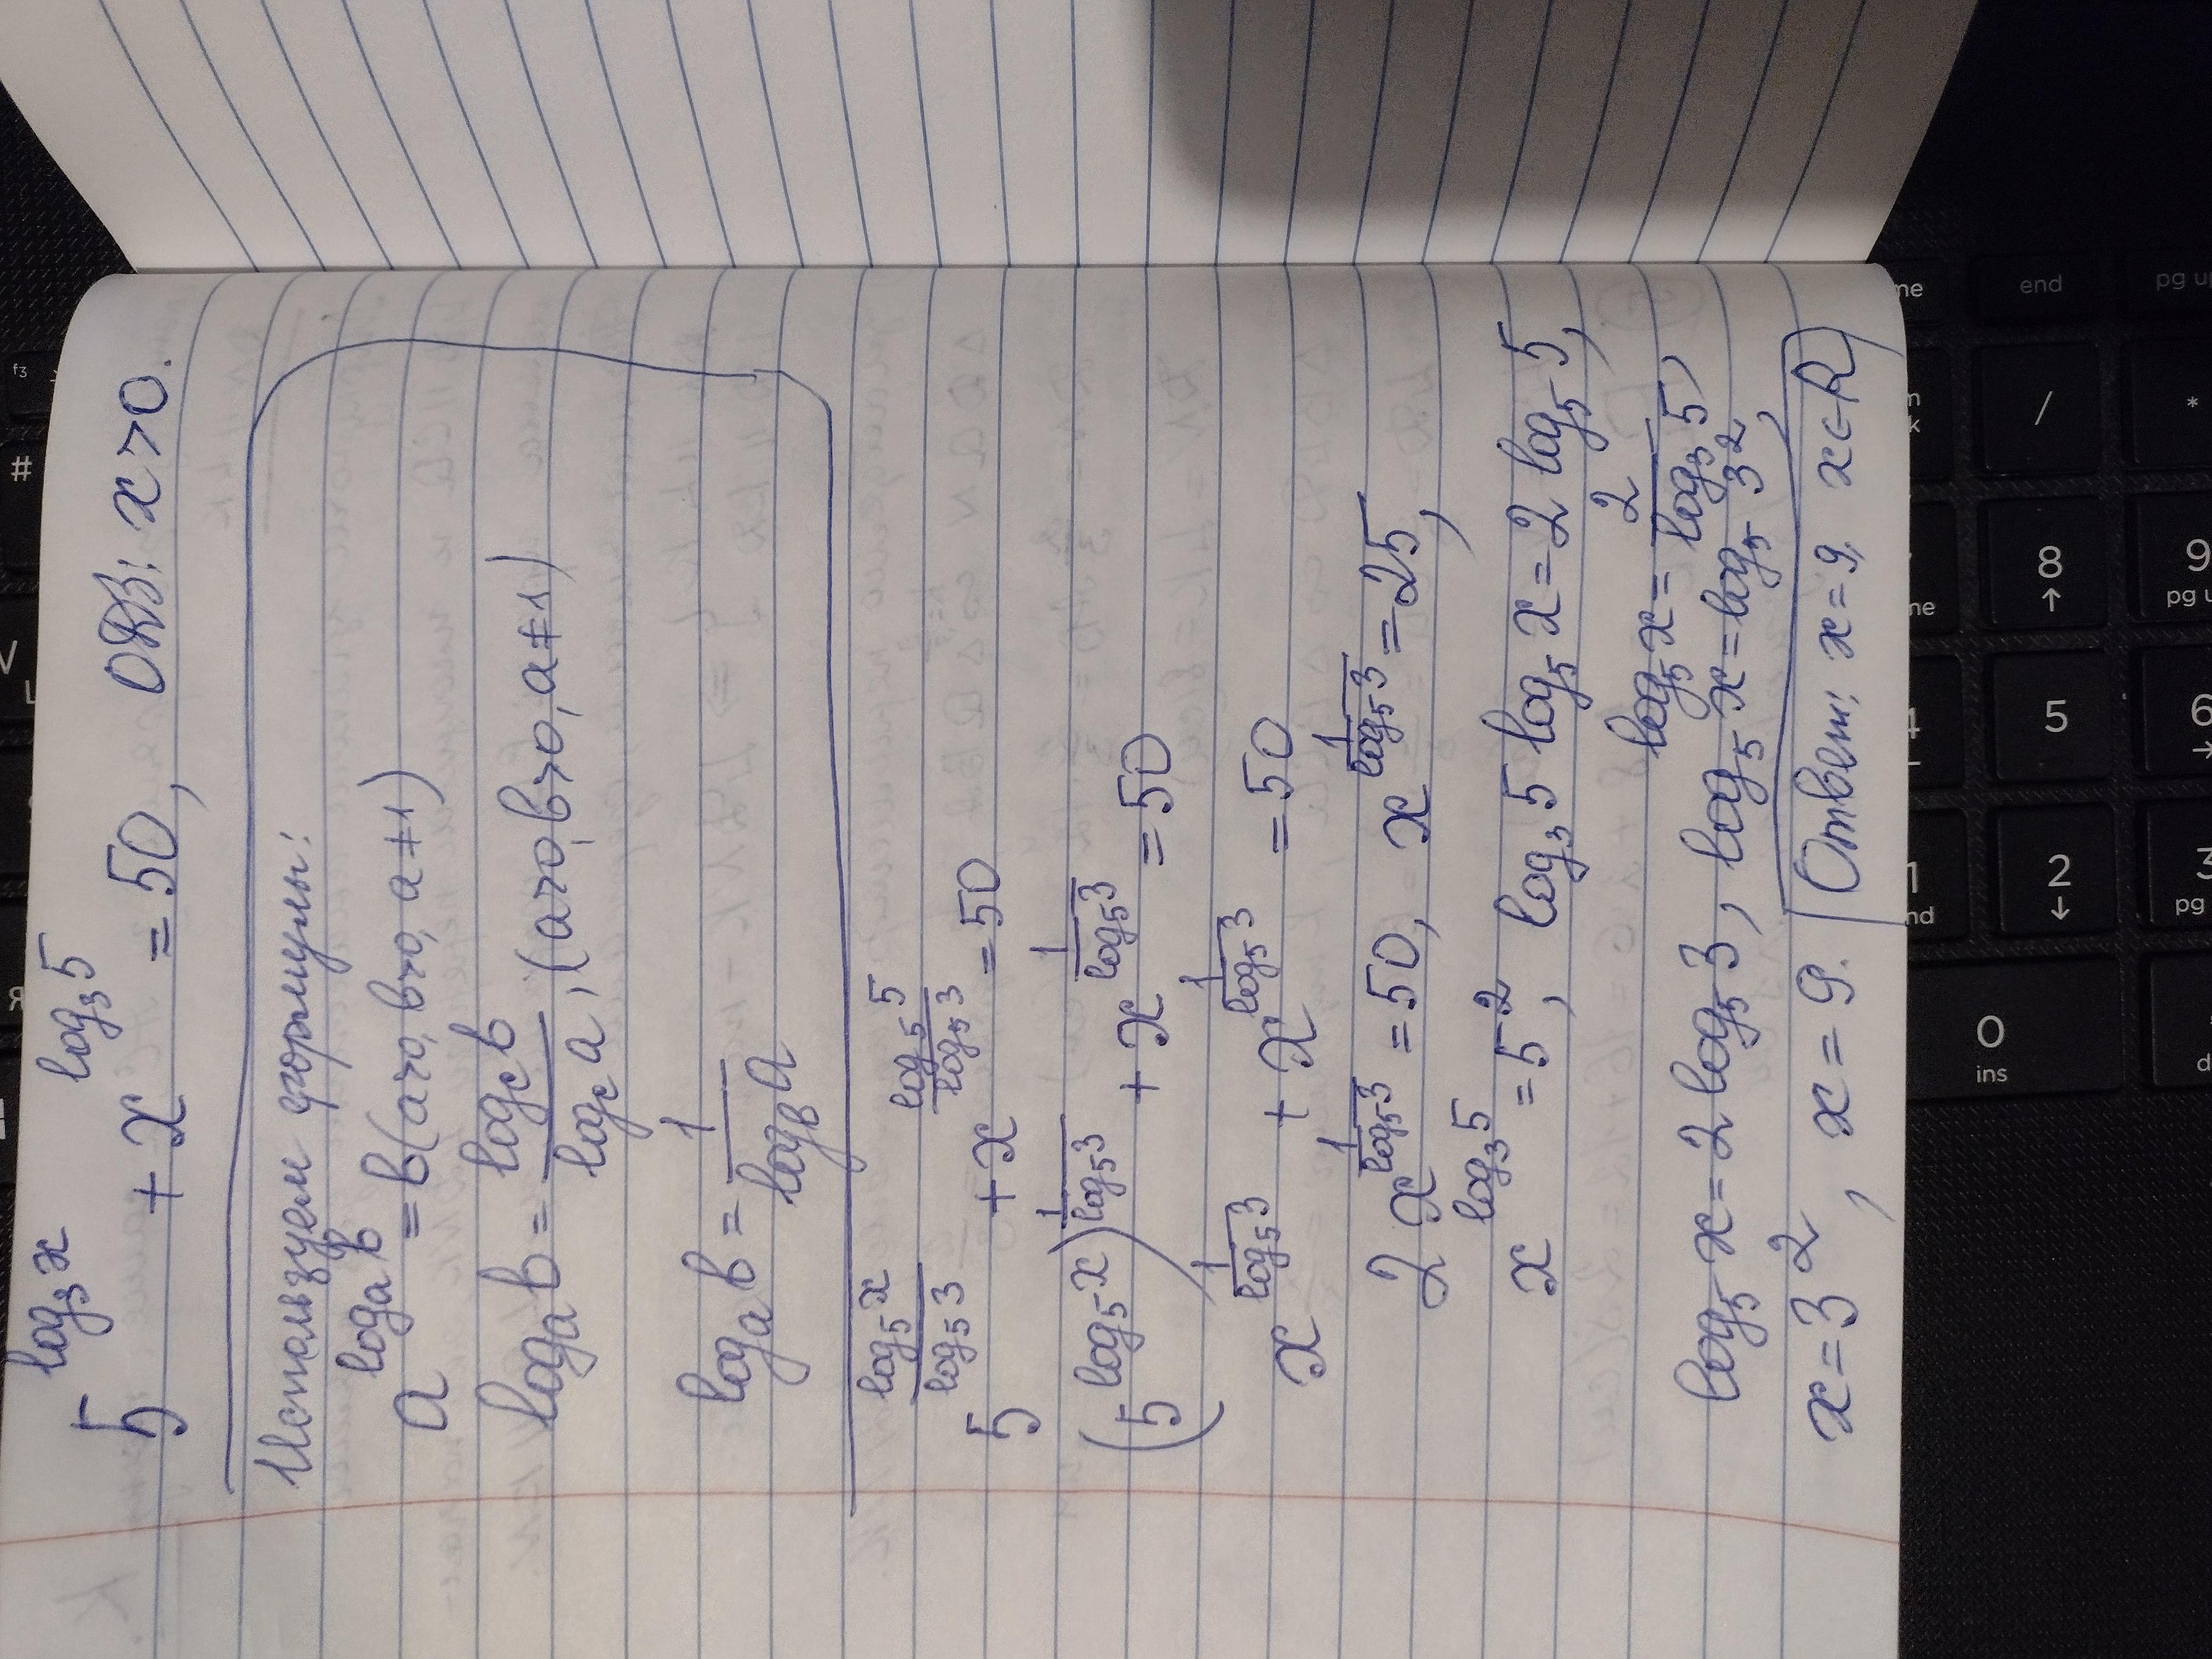 5^{log₃x} + x^{log₃5} = 50, ОДЗ: x>0.
Используем формулы:
a^{logₐb} = b (a>0, b>0, a≠1)
logₐb = \frac{log_c b}{log_c a}, (a>0, b>0, a≠1)
logₐb = \frac{1}{log_b a}
5^{\frac{log₅x}{log₅3}} + x^{\frac{log₅5}{log₅3}} = 50
(5^{log₅x})^{\frac{1}{log₅3}} + x^{\frac{1}{log₅3}} = 50
x^{\frac{1}{log₅3}} + x^{\frac{1}{log₅3}} = 50
2x^{\frac{1}{log₅3}} = 50, x^{\frac{1}{log₅3}} = 25,
x^{log₃5} = 5², log₃5 log₅x = 2 log₅5,
log₅x = \frac{2}{log₃5},
log₅x = 2log₅3, log₅x = log₅3²,
x = 3², x = 9. Ответ: x = 9, x∈R
ne
end
pg up
f3
#
/
*
8
9
pg u
5
6
1
2
3
pg
nd
0
ins